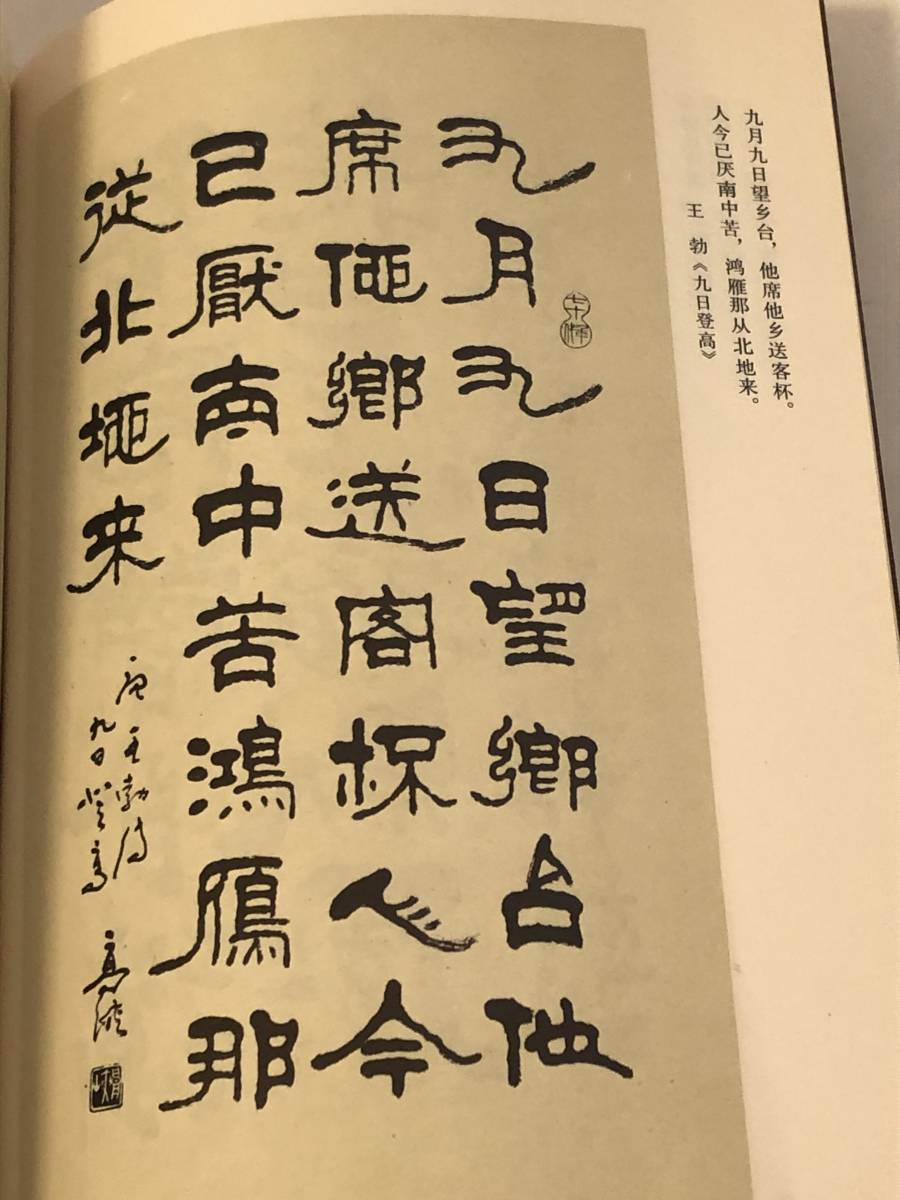 九月九日望乡台，他席他乡送客杯。
人今已厌南中苦，鸿雁那从北地来。
王 勃《九日登高》
九月九日望鄉台他
席他鄉送客杯人今
已厭南中苦鴻鴈那
從北地来
唐王勃诗
九日登高